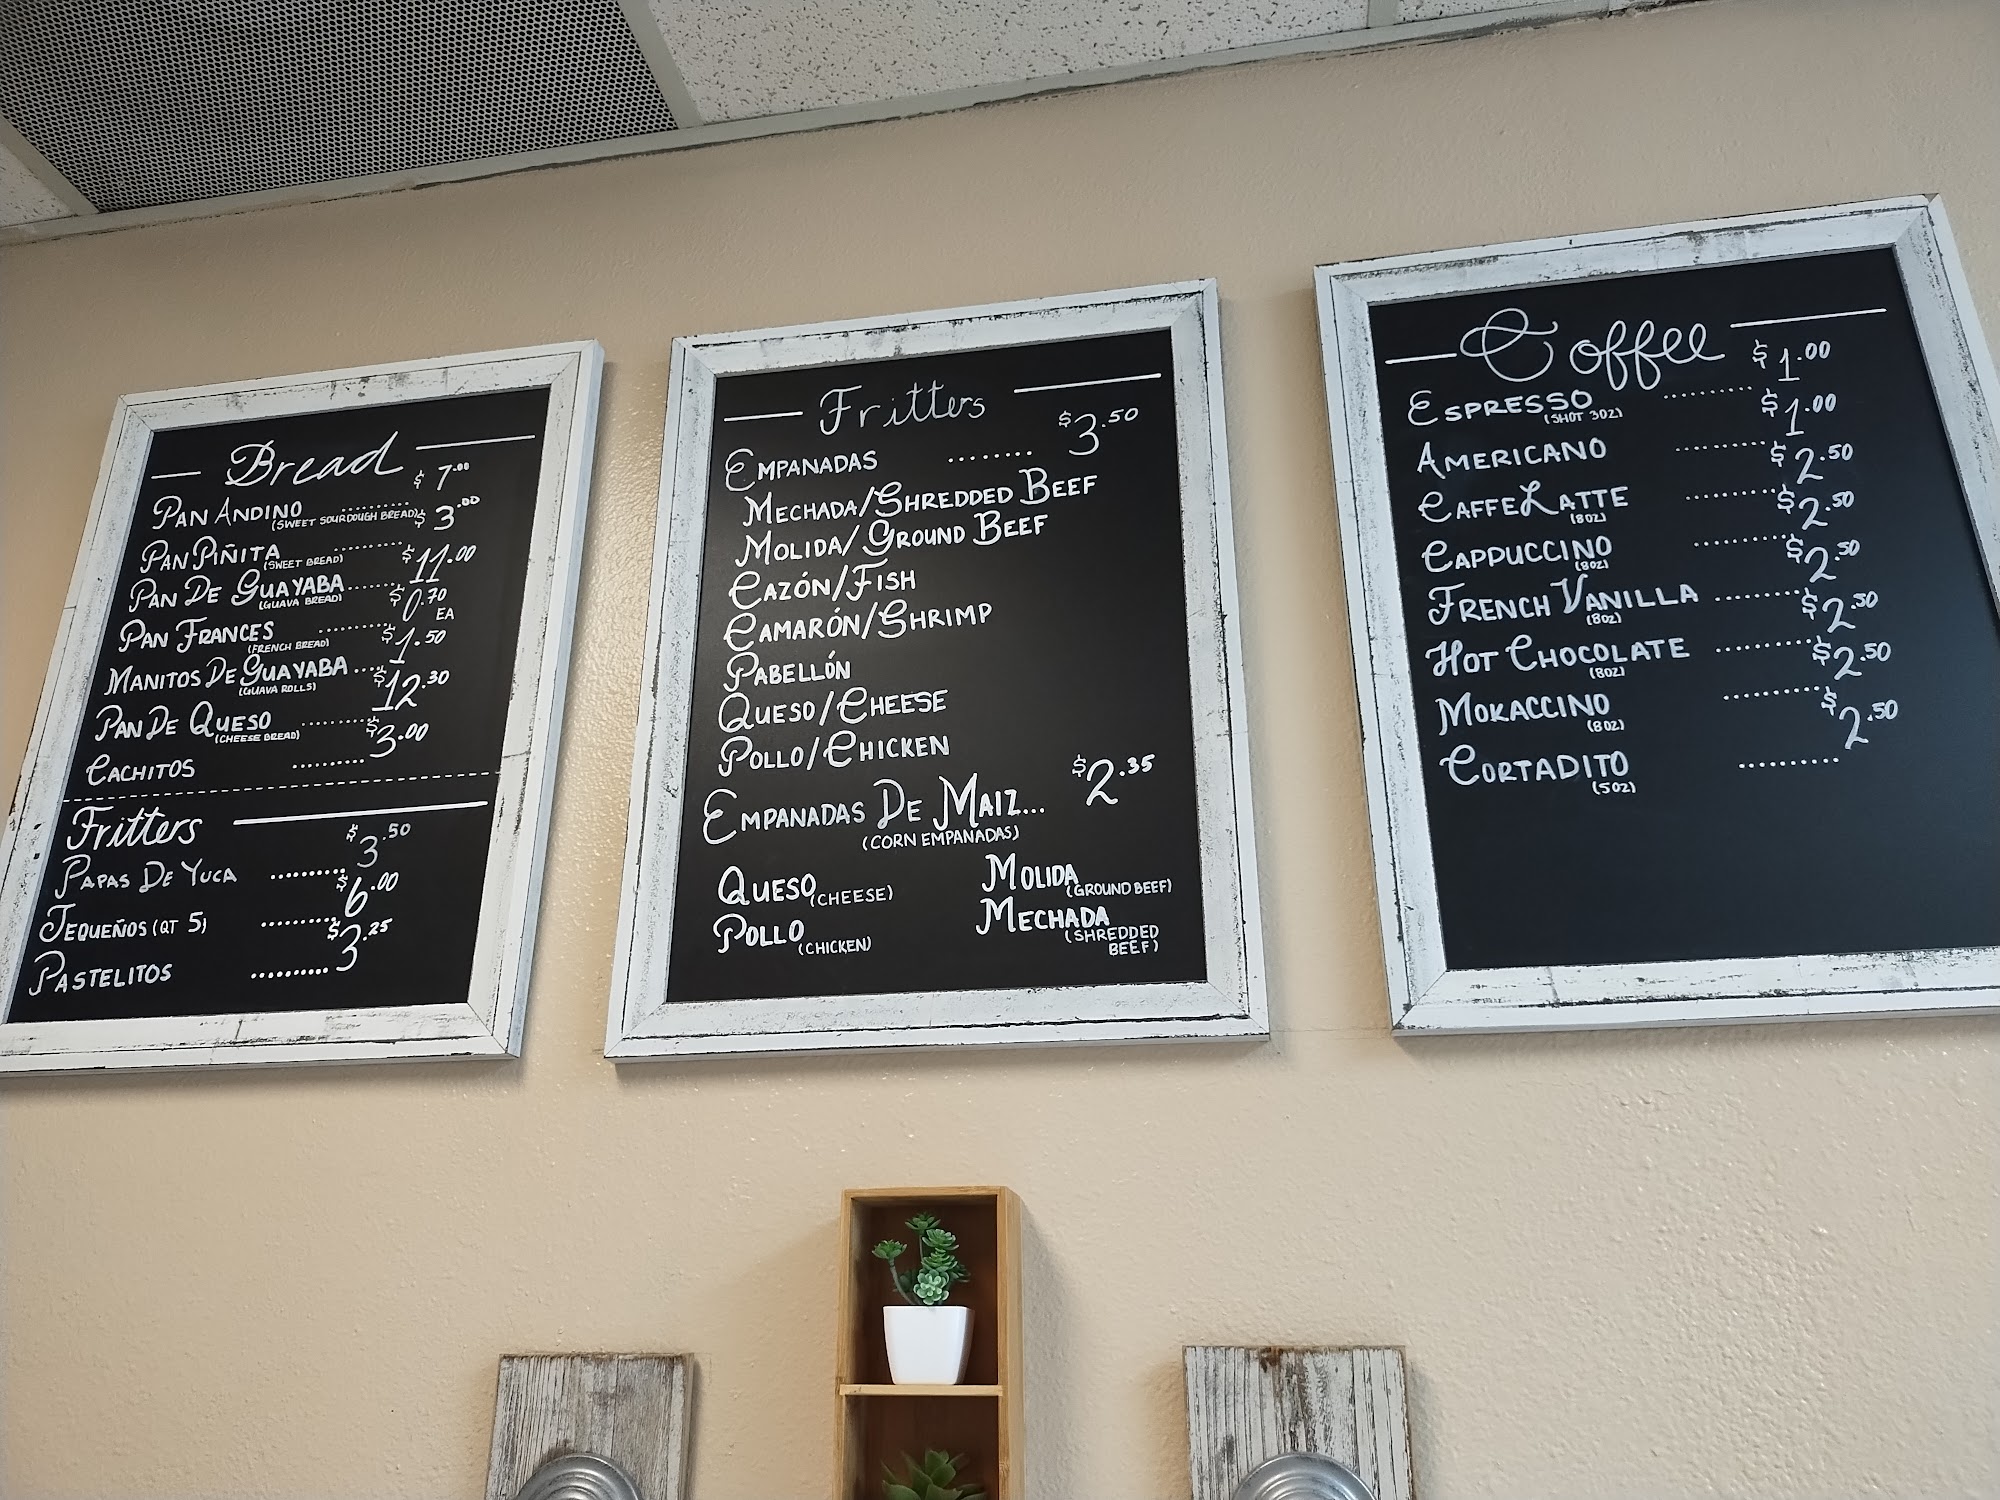 Bread
PAN ANDINO .......... $7.00
(SWEET SOURDOUGH BREAD)
PAN PIÑITA .......... $3.00
(SWEET BREAD)
PAN DE GUAYABA ...... $11.00
(GUAVA BREAD)
PAN FRANCES .......... $0.70 EA
(FRENCH BREAD)
MANITOS DE GUAYABA .... $1.50
(GUAVA ROLLS)
PAN DE QUESO .......... $12.30
(CHEESE BREAD)
CACHITOS .......... $3.00
Fritters
PAPAS DE YUCA .......... $3.50
TEQUEÑOS (QT 5) .......... $6.00
PASTELITOS .......... $3.25
Fritters
EMPANADAS ........ $3.50
MECHADA/SHREDDED BEEF
MOLIDA/GROUND BEEF
CAZÓN/FISH
CAMARÓN/SHRIMP
PABELLÓN
QUESO/CHEESE
POLLO/CHICKEN
EMPANADAS DE MAIZ... $2.35
(CORN EMPANADAS)
QUESO (CHEESE)
POLLO (CHICKEN)
MOLIDA (GROUND BEEF)
MECHADA (SHREDDED
BEEF)
Coffee
ESPRESSO .......... $1.00
(SHOT 3OZ)
AMERICANO .......... $1.00
CAFFE LATTE .......... $2.50
(8OZ)
CAPPUCCINO .......... $2.50
(8OZ)
FRENCH VANILLA .......... $2.50
(8OZ)
HOT CHOCOLATE .......... $2.50
(8OZ)
MOKACCINO .......... $2.50
(8OZ)
CORTADITO .......... $2.50
(5OZ)